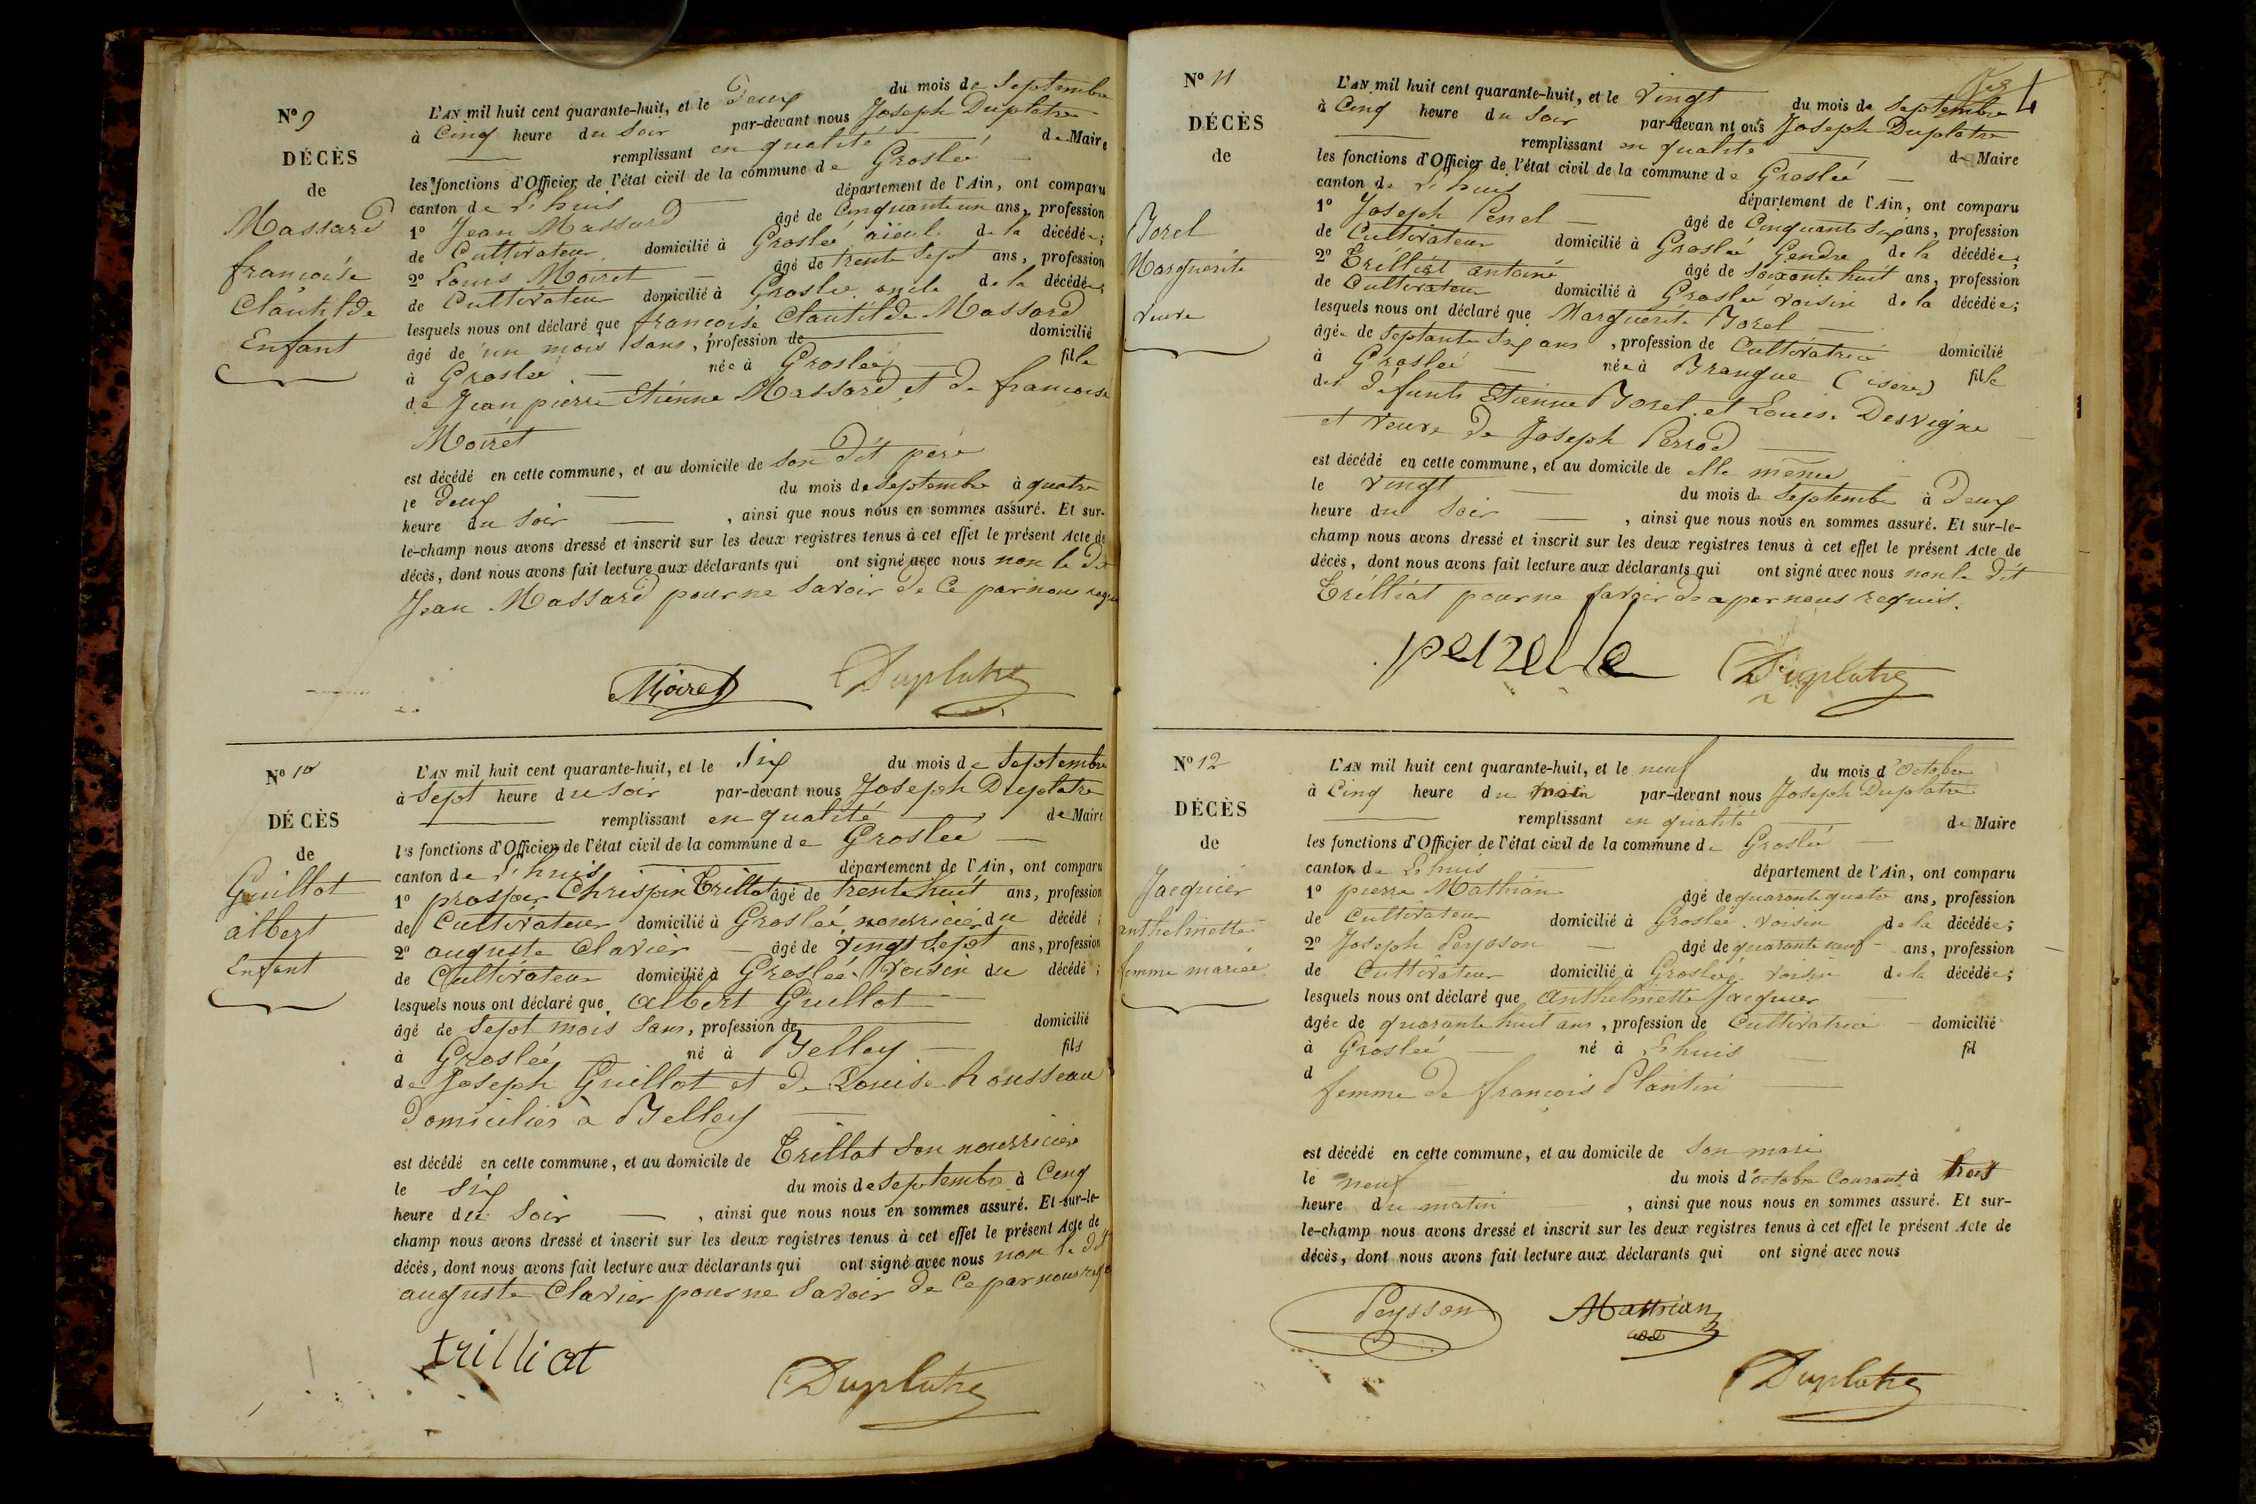 N° 9
DÉCÈS
de
Massard
françoise
Clautilde
Enfant
L'AN mil huit cent quarante-huit, et le deux du mois de Septembre
à Cinq heure du Soir par-devant nous Joseph Duplatre
remplissant en qualité de Maire
les fonctions d'Officier de l'état civil de la commune de Groslée
canton de L'huis département de l'Ain, ont comparu
1° Jean Massard âgé de Cinquante un ans, profession
de Cultivateur domicilié à Groslée aieul de la décédée;
2° Louis Moiret âgé de trente Sept ans, profession
de Cultivateur domicilié à Groslée oncle de la décédée;
lesquels nous ont déclaré que françoise Clautilde Massard
âgé de un mois Sans, profession de domicilié
à Groslée née à Groslée fille
de Jean pierre Etienne Massard et de francoise
Moiret
est décédé en cette commune, et au domicile de Son dit père
le deux du mois de Septembre à quatre
heure du Soir, ainsi que nous nous en sommes assuré. Et sur-
le-champ nous avons dressé et inscrit sur les deux registres tenus à cet effet le présent Acte de
décès, dont nous avons fait lecture aux déclarants qui ont signé avec nous non le dit
Jean Massard pour ne Savoir de Ce par nous requis
Moiret Duplatre
N° 10
DÉCÈS
de
Guillot
albert
Enfant
L'AN mil huit cent quarante-huit, et le Six du mois de Septembre
à Sept heure du Soir par-devant nous Joseph Duplatre
remplissant en qualité de Maire
les fonctions d'Officier de l'état civil de la commune de Groslée
canton de L'huis département de l'Ain, ont comparu
1° prosper Chrispin Trillat âgé de trente huit ans, profession
de Cultivateur domicilié à Groslée, nourricier du décédé;
2° auguste Clavier âgé de vingt Sept ans, profession
de Cultivateur domicilié à Groslée voisin du décédé;
lesquels nous ont déclaré que albert Guillot
âgé de Sept mois Sans, profession de domicilié
à Groslée né à Belley fils
de Joseph Guillot et de Louise Rousseau
domiciliés à Belley
est décédé en cette commune, et au domicile de Trillat Son nourricier
le Six du mois de Septembre à Cinq
heure du Soir, ainsi que nous nous en sommes assuré. Et sur-le-
champ nous avons dressé et inscrit sur les deux registres tenus à cet effet le présent Acte de
décès, dont nous avons fait lecture aux déclarants qui ont signé avec nous non le dit
auguste Clavier pour ne Savoir de Ce par nous requis
trilliat
Duplatre
N° 11
DÉCÈS
de
Borel
Marguerite
veuve
4
L'AN mil huit cent quarante-huit, et le vingt du mois de Septembre
à Cinq heure du Soir par-devan nt ous Joseph Duplatre
remplissant en qualité de Maire
les fonctions d'Officier de l'état civil de la commune de Groslée
canton de L'huis département de l'Ain, ont comparu
1° Joseph Penel âgé de Cinquante Six ans, profession
de Cultivateur domicilié à Groslée Gendre de la décédée;
2° Trilliat antoine âgé de Soixante huit ans, profession
de Cultivateur domicilié à Groslée voisin de la décédée;
lesquels nous ont déclaré que Marguerite Borel
âgée de Septante Six ans, profession de Cultivatrice domicilié
à Groslée née à Brangue (isere) fille
des défunts Etienne Borel et Louise Desvigne
et veuve de Joseph Perrod
est décédé en cette commune, et au domicile de elle même
le vingt du mois de Septembre à deux
heure du Soir, ainsi que nous nous en sommes assuré. Et sur-le-
champ nous avons dressé et inscrit sur les deux registres tenus à cet effet le présent Acte de
décès, dont nous avons fait lecture aux déclarants qui ont signé avec nous non le dit
Trilliat pour ne Savoir de ce par nous requis.
Duplatre
N° 12
DÉCÈS
de
Jacquier
anthelmette
femme mariée
L'AN mil huit cent quarante-huit, et le neuf du mois d'octobre
à Cinq heure du par-devant nous Joseph Duplatre
remplissant en qualité de Maire
les fonctions d'Officier de l'état civil de la commune de Groslée
canton de L'huis département de l'Ain, ont comparu
1° pierre Mathian âgé de quarante quatre ans, profession
de Cultivateur domicilié à Groslée voisin de la décédée;
2° Joseph Peysson âgé de quarante neuf ans, profession
de Cultivateur domicilié à Groslée voisin de la décédée;
lesquels nous ont déclaré que Anthelmette Jacquier
âgée de quarante huit ans, profession de Cultivatrice domicilié
à Groslée né à L'huis fil
d
femme de françois Plantin
est décédé en cette commune, et au domicile de Son mari
le neuf du mois d'octobre Courant à trois
heure du matin, ainsi que nous nous en sommes assuré. Et sur-
le-champ nous avons dressé et inscrit sur les deux registres tenus à cet effet le présent Acte de
décès, dont nous avons fait lecture aux déclarants qui ont signé avec nous
Peysson Mathian
Duplatre